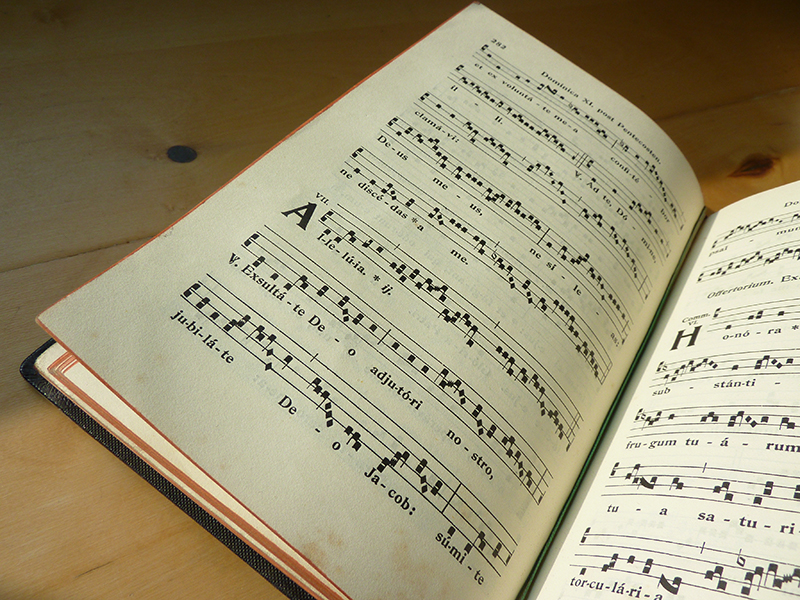 282
Dominica XI. post Pentecosten.
et ex voluntá - te me-a confi-té
il - li. V. Ad te, Dó - mine,
clamá-vi:
De-us me - us, ne sí - le -
ne discé-das * a me.
VII.
A l-le-lú-ia. * ij.
V. Exsultá-te De - o adju-tó-ri no - stro,
ju-bi-lá-te De - o Ja-cob: sú-mi-te
Do
Offertorium. Ex
Comm.
VI.
H o-nó-ra *
sub - stán-ti -
fru-gum tu - á - rum
tu - a sa-tu-ri
tor-cu-lá-ri-a